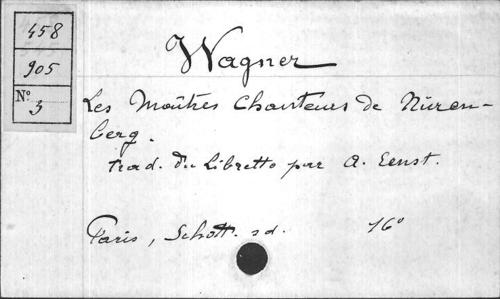 458
905
N.º
3
Wagner
Les Maîtres Chanteurs de Nuren-
berg.
trad. du Libretto par A. Ernst.
Paris, Schott. s d. 16º